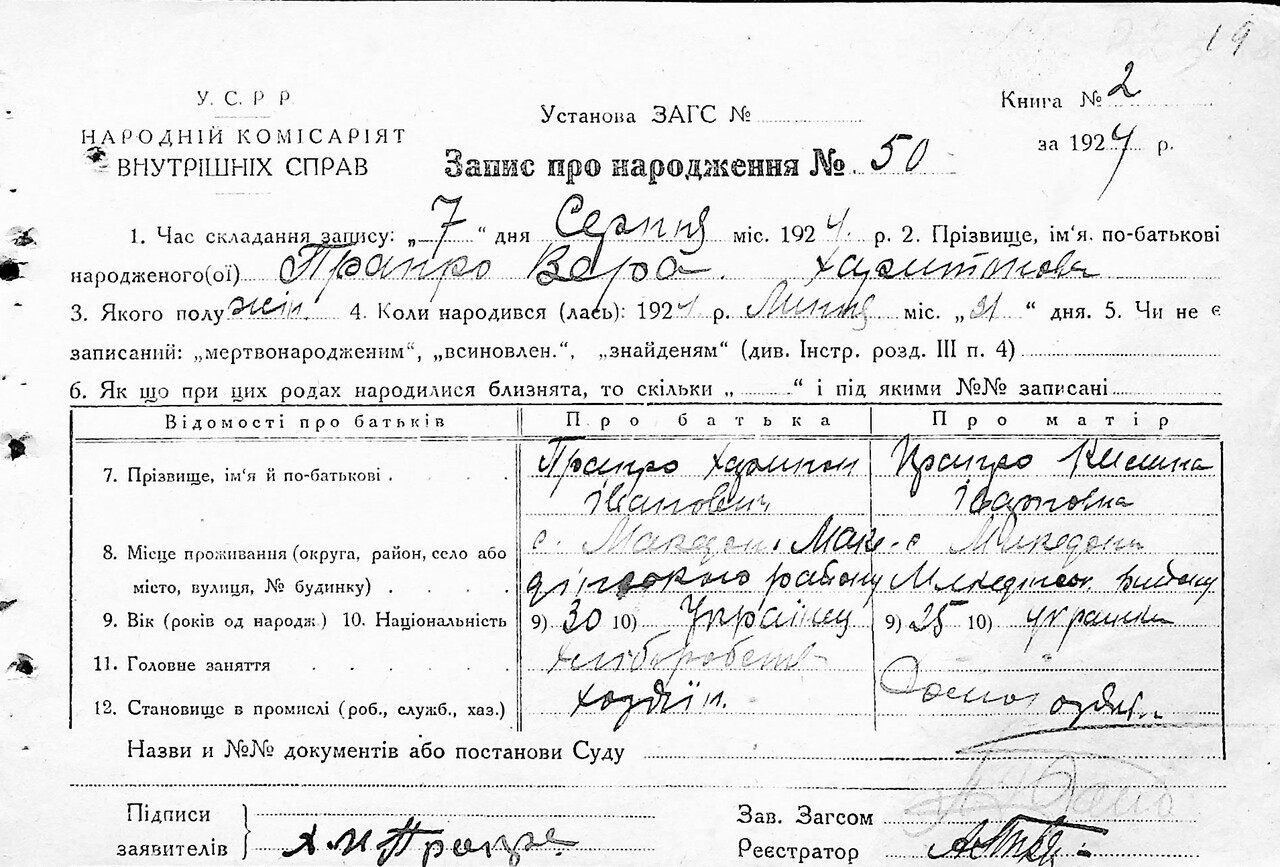 19
У. С. Р Р
НАРОДНІЙ КОМІСАРІЯТ
ВНУТРІШНІХ СПРАВ
Установа ЗАГС №
Книга № 2
за 1924 р.
Запис про народження № 50
1. Час складання запису: „7“ дня Серпня міс. 1924 р. 2. Прізвище, ім'я. по-батькові
народженого(ої) Прапро Вера Харитонова
3. Якого полу жін. 4. Коли народився (лась): 1924 р. Липня міс. „21“ дня. 5. Чи не є
записаний: „мертвонародженим“, „всиновлен.“, „знайденям“ (див. Інстр. розд. III п. 4)
6. Як що при цих родах народилися близнята, то скільки „ “ і під якими №№ записані
Відомості про батьків Про батька Про матір
7. Прізвище, ім'я й по-батькові Прапро Харитон Прапро Килина
Іванович Івановна
8. Місце проживання (округа, район, село або с. Македон. Мак- с Македони
місто, вулиця, № будинку) дінського району району
9. Вік (років од народж) 10. Національність 9) 30 10) Українец 9) 25 10) Украінка
11. Головне заняття Хліборобств
12. Становище в промислі (роб., служб., хаз.) хозяїн.
Назви и №№ документів або постанови Суду
Підписи
заявителів Х И
Зав. Загсом
Реєстратор